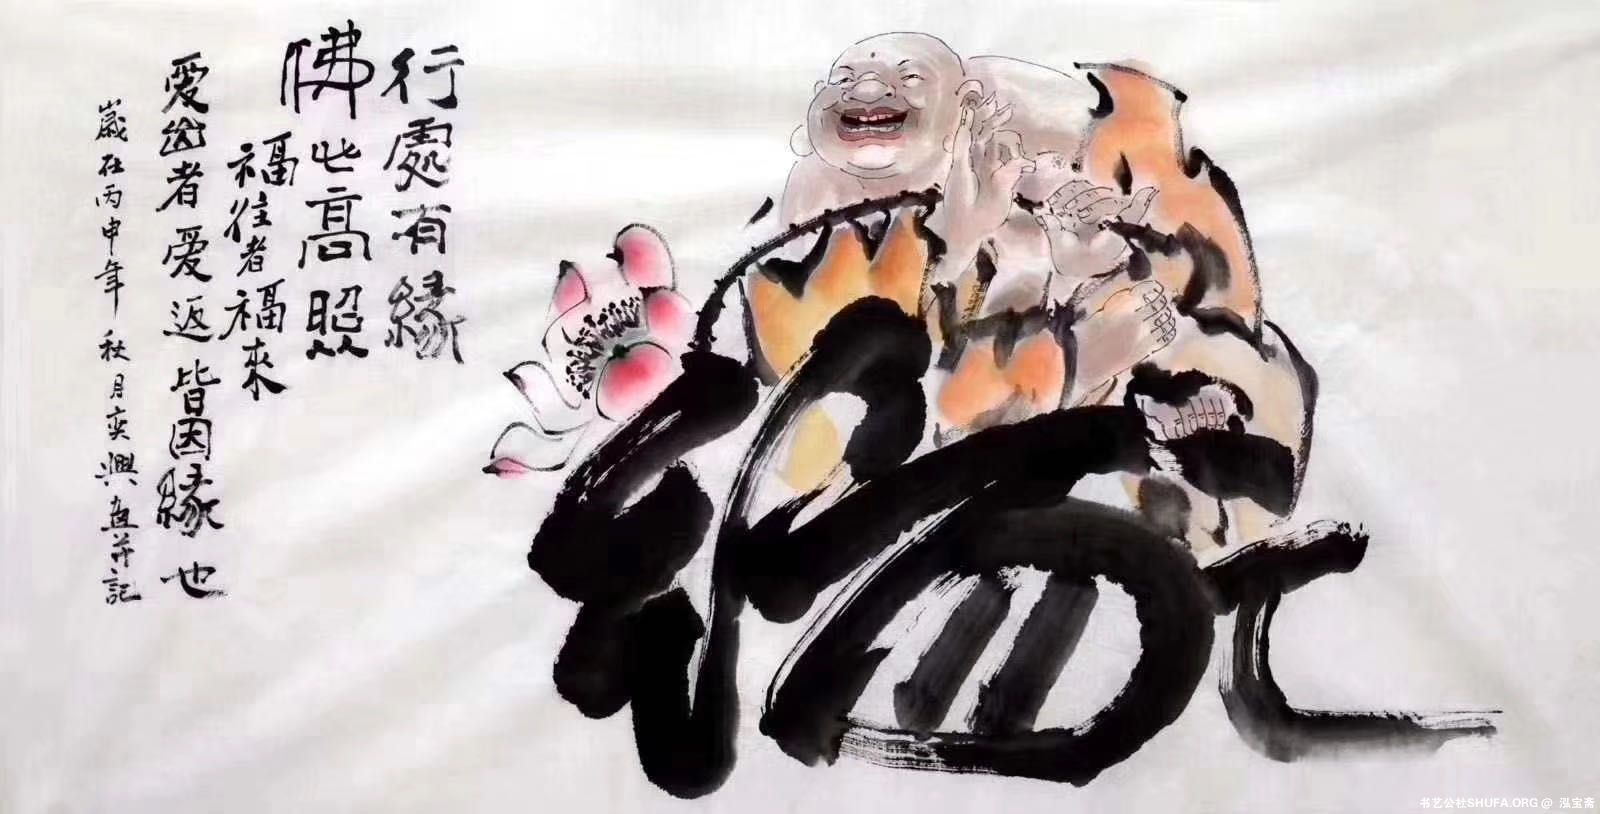 行處有緣
佛高照
福往者福來
愛出者愛返皆因緣也
歲在丙申年秋月奕興畫并記
书艺公社SHUFA.ORG @ 泓宝斋